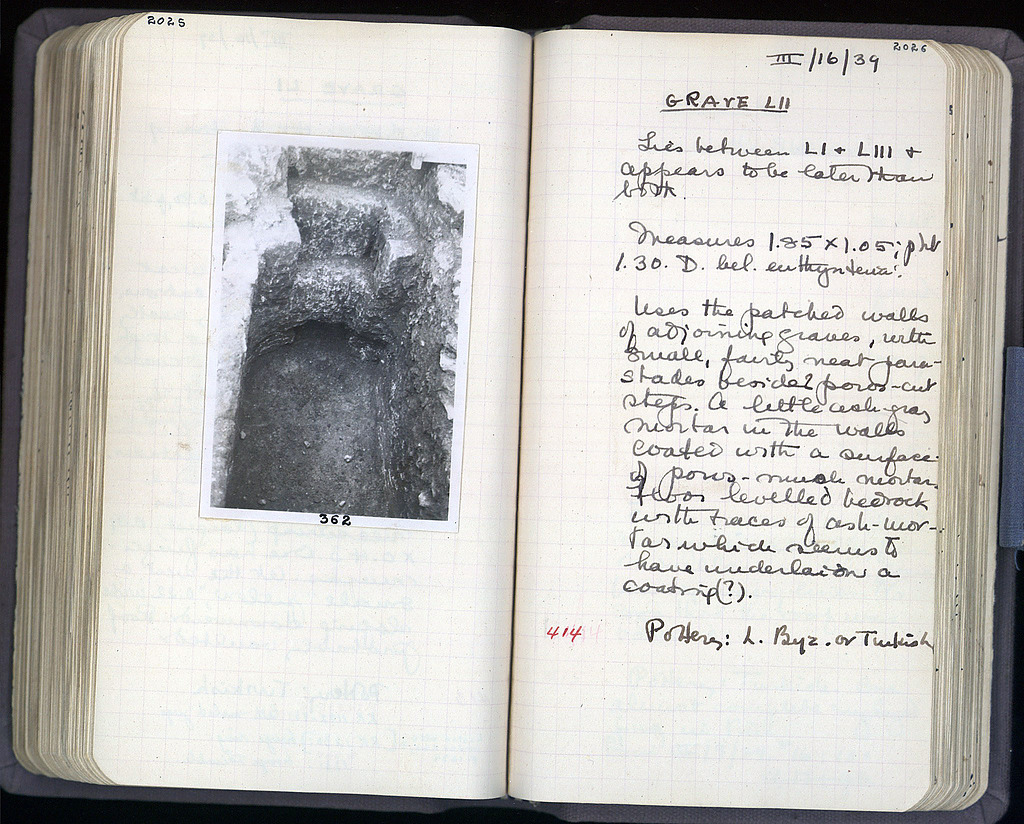 2025
362
2026
III/16/39
GRAVE LII
Lies between LI + LIII +
appears to be later than
both.
Measures 1.85 x 1.05; pht
1.30. D. bel. euthynteria.
Uses the patched walls
of adjoining graves, with
small, fairly neat para-
stades beside 2 poros-cut
steps. A little ash-gray
mortar in the walls
coated with a surface
of poros-much mortar.
Floor levelled bedrock
with traces of ash-mor-
tar which seems to
have underlain a
coating(?).
414 Pottery: L. Byz. or Turkish